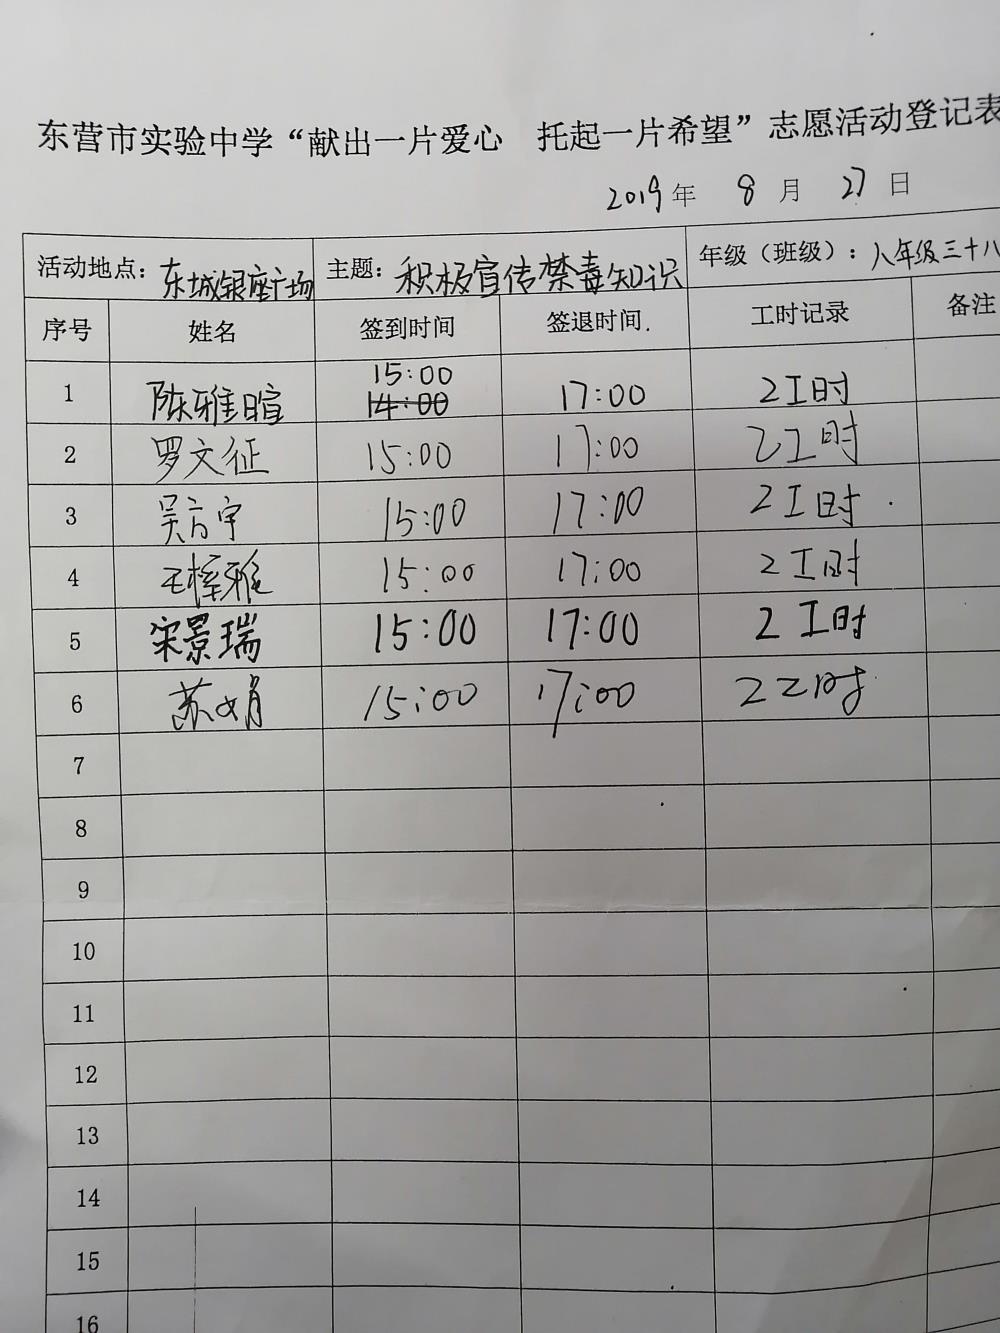 东营市实验中学“献出一片爱心 托起一片希望”志愿活动登记表
2019年 8月 27日
活动地点：东城银座广场 主题：积极宣传禁毒知识 年级（班级）：八年级三十八
序号 姓名 签到时间 签退时间 工时记录 备注
1 陈雅暄 15:00 14:00 17:00 2工时
2 罗文征 15:00 17:00 2工时
3 吴方宇 15:00 17:00 2工时
4 王梓雅 15:00 17:00 2工时
5 宋景瑞 15:00 17:00 2工时
6 苏文娟 15:00 17:00 2工时
7
8
9
10
11
12
13
14
15
16